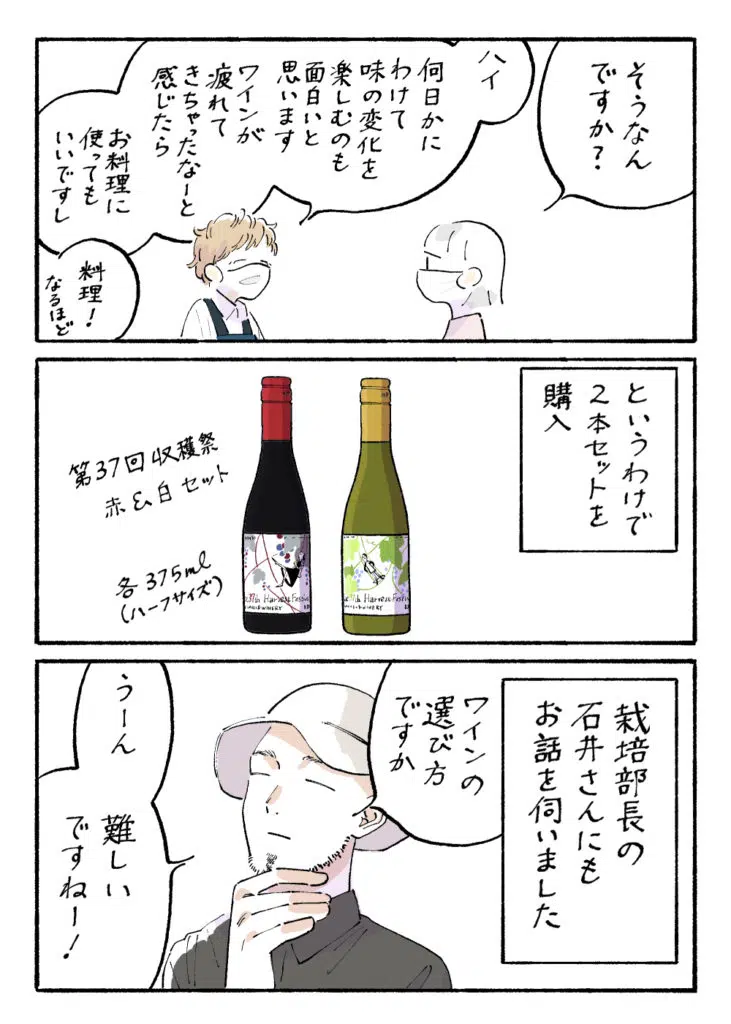 そうなん
ですか？
ハイ
何日かに
わけて
味の変化を
楽しむのも
面白いと
思います
ワインが
疲れて
きちゃったなーと
感じたら
お料理に
使っても
いいですし
料理！
なるほど
というわけで
2本セットを
購入
第37回収穫祭
赤&白セット
各375ml
(ハーフサイズ)
37th Harvest Festiv
WINERY
37th Harvest Festiv
WINERY
栽培部長の
石井さんにも
お話を伺いました
ワインの
選び方
ですか
うーん
難しい
ですねー！